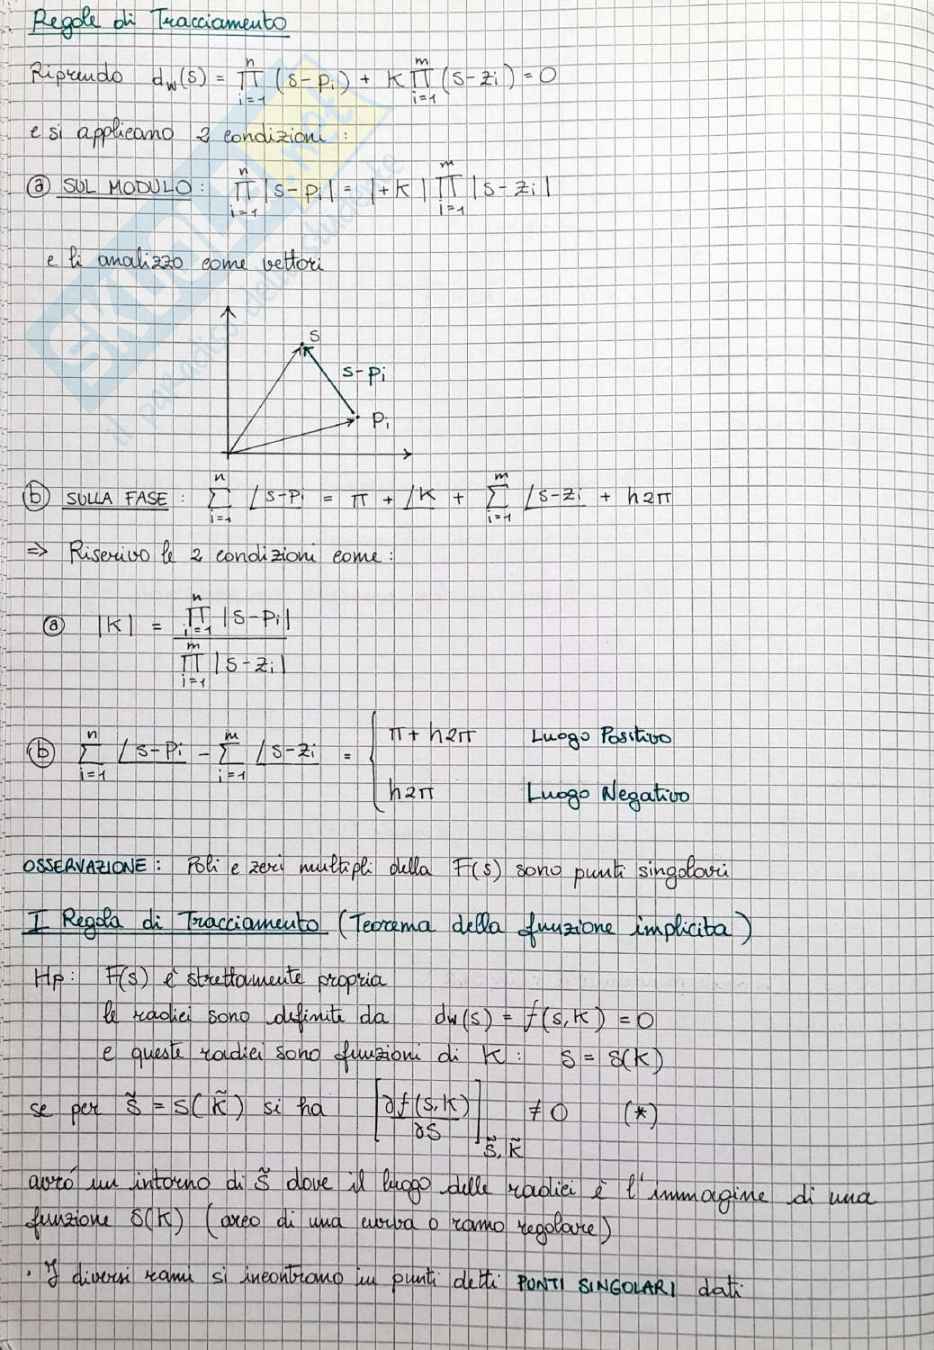 Regole di Tracciamento
Riprendo d_w(s) = ∏_{i=1}^{n} (s-p_i) + K ∏_{i=1}^{m} (s-z_i) = 0
e si applicano 2 condizioni:
ⓐ SUL MODULO: ∏_{i=1}^{n} |s-p_i| = |+K| ∏_{i=1}^{m} |s-z_i|
e li analizzo come vettori
s
s-p_i
p_i
ⓑ SULLA FASE: ∑_{i=1}^{n} ∠s-p_i = π + ∠K + ∑_{i=1}^{m} ∠s-z_i + h2π
=> Riscrivo le 2 condizioni come:
ⓐ |K| = ∏_{i=1}^{n} |s-p_i| / ∏_{i=1}^{m} |s-z_i|
ⓑ ∑_{i=1}^{n} ∠s-p_i - ∑_{i=1}^{m} ∠s-z_i = { π + h2π Luogo Positivo
h2π Luogo Negativo
OSSERVAZIONE: Poli e zeri multipli della F(s) sono punti singolari
I Regola di Tracciamento (Teorema della funzione implicita)
Hp: F(s) è strettamente propria
le radici sono definite da d_w(s) = f(s,K) = 0
e queste radici sono funzioni di K: s = s(K)
se per s̃ = s(K̃) si ha [∂f(s,K)/∂s]_{s̃,K̃} ≠ 0 (*)
avró un intorno di s̃ dove il luogo delle radici è l'immagine di una
funzione s(K) (arco di una curva o ramo regolare)
· I diversi rami si incontrano in punti detti PUNTI SINGOLARI dati
SKUOLA.net